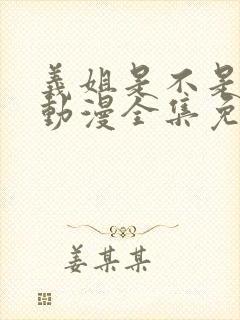 義姐是不是
動漫全集免
姜某某